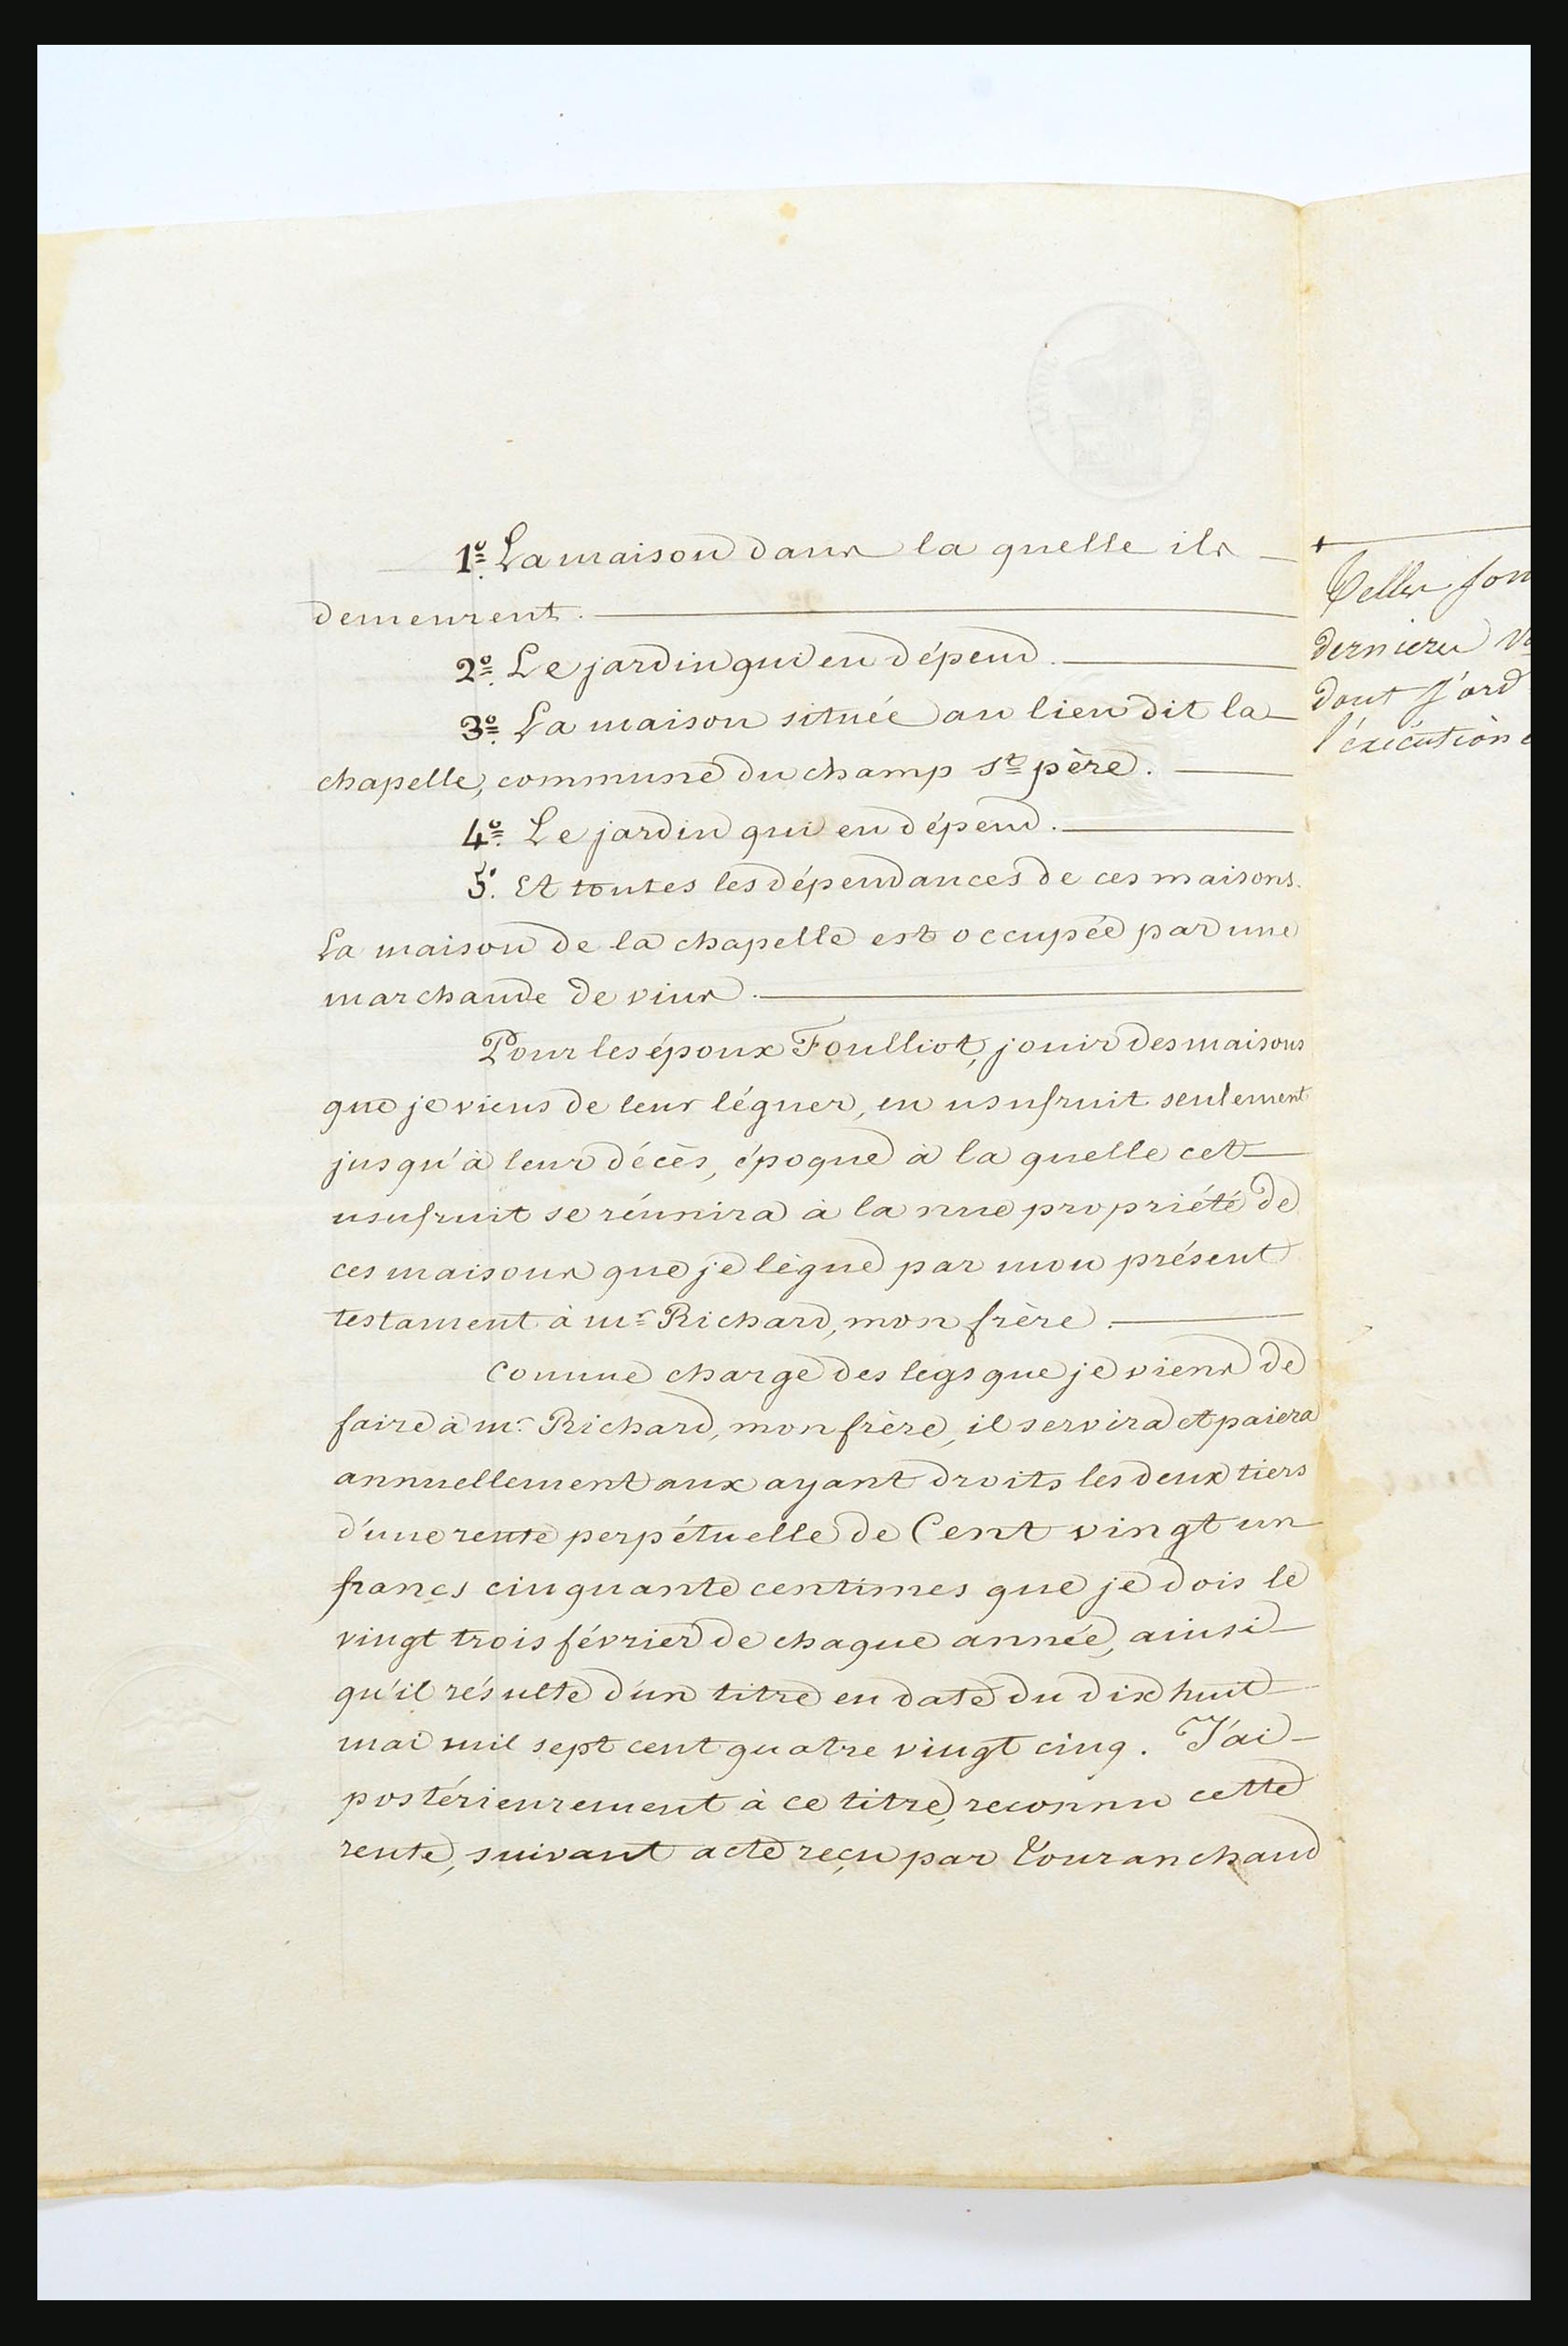 1º. La maison dans la quelle ils
demeurent.
2º. Le jardin qui en dépend.
3º. La maison située au lieu dit la
chapelle, commune du champ St père.
4º. Le jardin qui en dépend.
5º. Et toutes les dépendances de ces maisons.
La maison de la chapelle est occupée par une
marchande de vins.
Pour les époux Foulliot, jouir des maisons
que je viens de leur léguer, en usufruit seulement
jusqu'à leur décès, époque à la quelle cet
usufruit se réunira à la nue propriété de
ces maisons que je lègue par mon présent
testament à mr Richard, mon frère.
Comme charge des legs que je viens de
faire à mr. Richard, mon frère, il servira et paiera
annuellement aux ayant droits les deux tiers
d'une rente perpétuelle de Cent vingt un
francs cinquante centimes que je dois le
vingt trois février de chaque année, ainsi
qu'il résulte d'un titre en date du dix huit
mai mil sept cent quatre vingt cinq. J'ai
postérieurement à ce titre, reconnu cette
rente, suivant acte reçu par Touranchaud
Telles son
dernieres vo
dont j'ord
l'éxécution